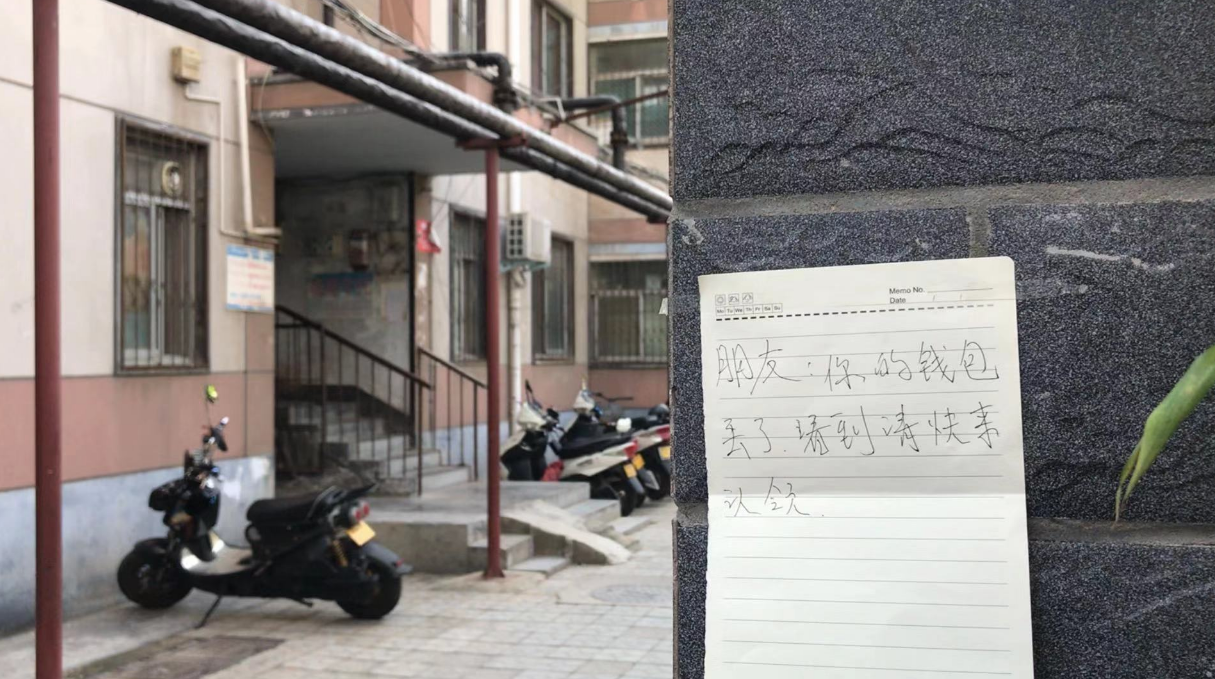 Memo No.
Date
Mo Tu We Th Fr Sa Su
朋友:你的钱包
丢了.看到请快来
认领.